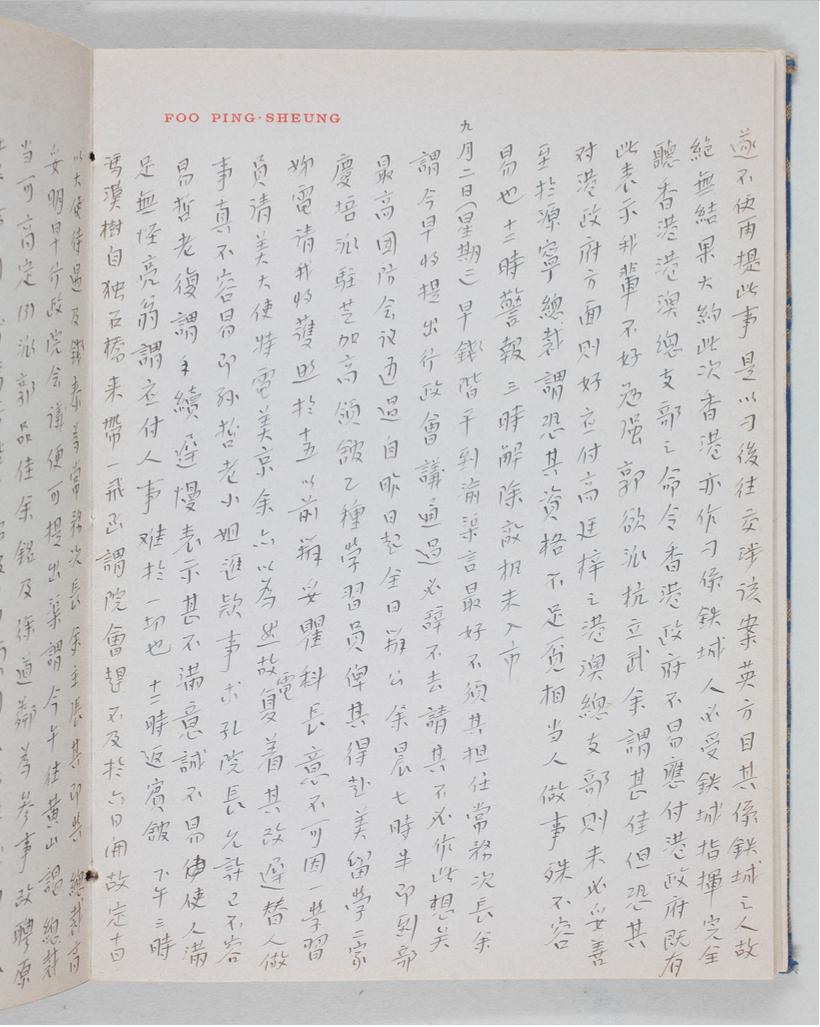 FOO PING-SHEUNG
遂不便再提此事是以刁後往交涉該案英方目其係鉄城之人故
絕無結果大約此次香港亦作刁係鉄城人必受鉄城指揮完全
聽香港港澳總支部之命令香港政府不易應付港政府既有
此表示我輩不好勉强郭欲派杭立武余謂甚佳但恐其
对港政府方面則好应付高廷梓之港澳總支部則未必妥善
至於源寧總裁謂恐其資格不足覓相当人做事殊不容
易也十二時警報三時解除敵机未入市
九月二日(星期三)早錢階平到渝渠言最好不須其担任常務次長余
謂今早將提出行政會議通過必辞不去請其不必作此想矣
最高国防会议通過自昨日起全日辦公余晨七時半即到部
慶培派駐芝加高領館乙種學習員俾其得赴美留學二家
姊電請我將護照於十五以前辦妥瞿科長意不可因一學習
員請美大使特電美京余亦以為然故電复着其改遲替人做
事真不容易即孙哲老小姐匯款事求孔院長允許已不容
易哲老復謂手續遲慢表示甚不滿意誠不易使人滿
足無怪亮翁謂应付人事难於一切也十二時返賓館下午三時
馮漢樹自独石橋来帶一飛函謂院會趕不及於六日開故定十日
以大使待遇及錢泰為常務次長余主張其即與總裁言
妥明早行政院会議便可提出渠謂今午往黄山謁總裁
当可商定派郭品佳余銘及徐道鄰為參事改聘原